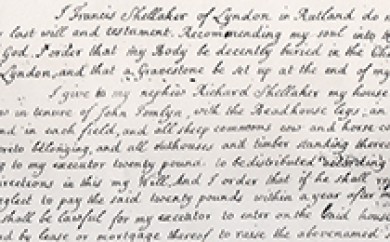 I Francis Shellaker of Lyndon in Rutland do
last will and testament. Recommending my soul into
God. I order that my Body be decently buried in the
Lyndon, and that a Gravestone be set up at the end of my
I give to my nephew Richard Shellaker my house
in tenure of John Tomlyn, with the Beadhouse leys, an
in each field, and all sheep commons cow and horse
belonging, and all outhouses and timber standing
to my executor twenty pound to be distributed according
directions in this my Will, And I order that if he shall
neglect to pay the said twenty pounds within a year after
shall be lawful for my executor to enter on the said
by lease or mortgage thereof to raise the abovenamed